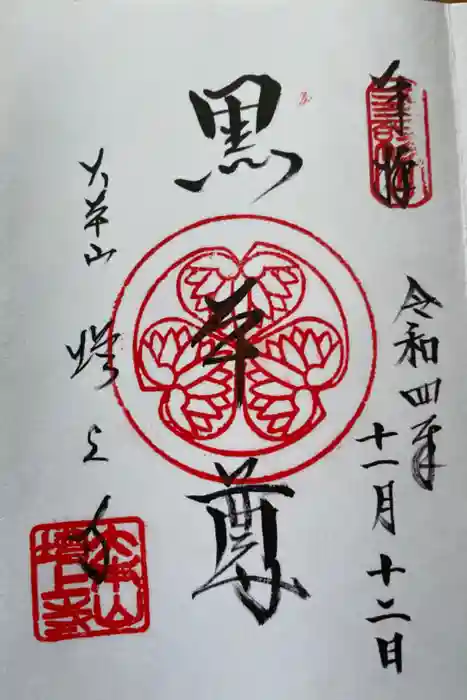 奉拝
令和四年
十一月十二日
黒本尊
大本山 増上寺
大本山
増上寺